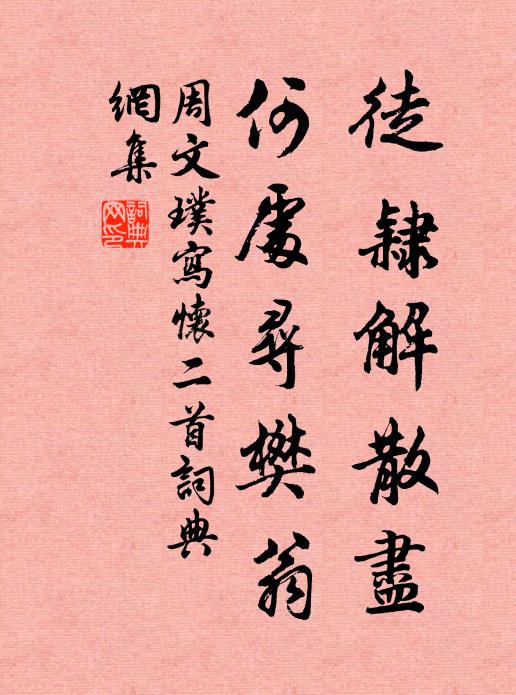 徒隸解散盡
何處尋樊翁
周文璞寫懷二首詞典
網集
詞典網印